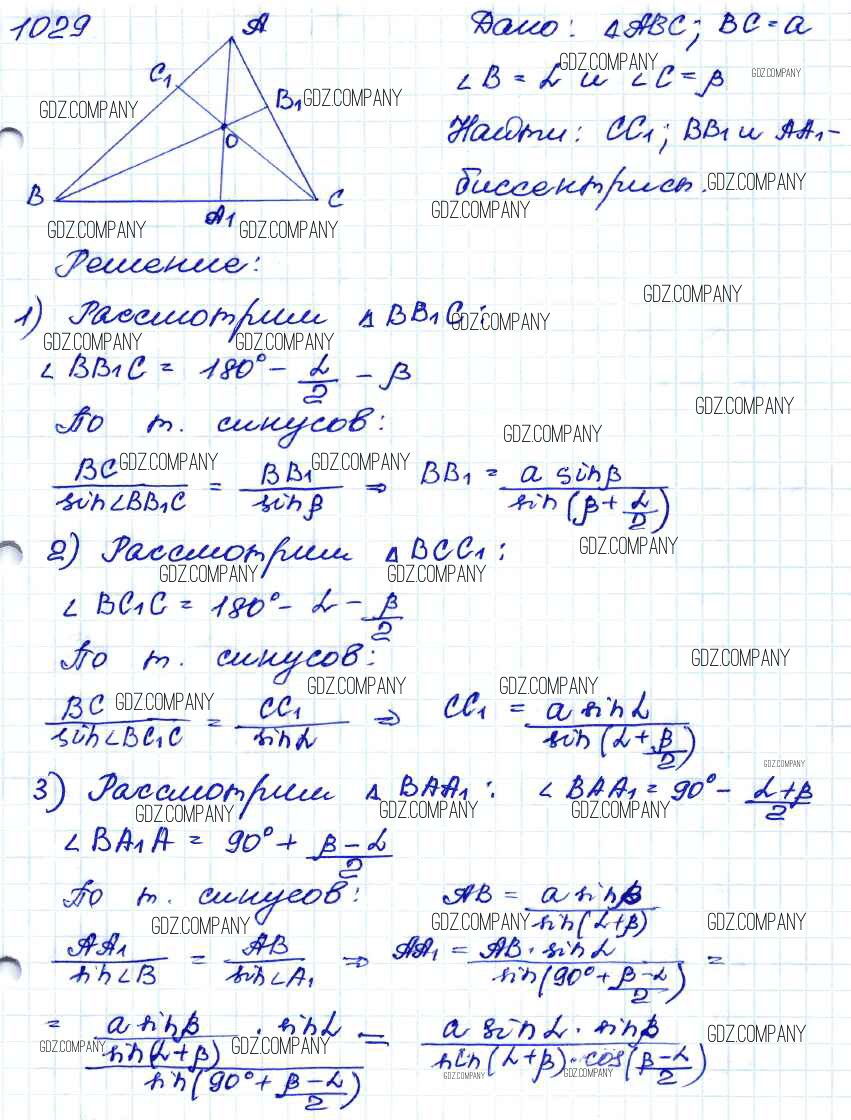 1029
A
C₁
B₁
O
B
A₁
C
Дано: △ABC; BC = a
∠B = α и ∠C = β
Найти: CC₁; BB₁ и AA₁ –
биссектрисы.
Решение:
1) Рассмотрим △BB₁C:
∠BB₁C = 180° − α/2 − β
По т. синусов:
BC/sin∠BB₁C = BB₁/sinβ ⇒ BB₁ = a sinβ/sin(β + α/2)
2) Рассмотрим △BCC₁:
∠BC₁C = 180° − α − β/2
По т. синусов:
BC/sin∠BC₁C = CC₁/sinα ⇒ CC₁ = a sinα/sin(α + β/2)
3) Рассмотрим △BAA₁: ∠BAA₁ = 90° − (α+β)/2
∠BA₁A = 90° + (β−α)/2
По т. синусов: AB = a sinβ/sin(α+β)
AA₁/sin∠B = AB/sin∠A₁ ⇒ AA₁ = AB · sinα/sin(90° + (β−α)/2) =
= (a sinβ/sin(α+β) · sinα)/sin(90° + (β−α)/2) = a sinα · sinβ/(sin(α+β) · cos((β−α)/2))
GDZ.COMPANY